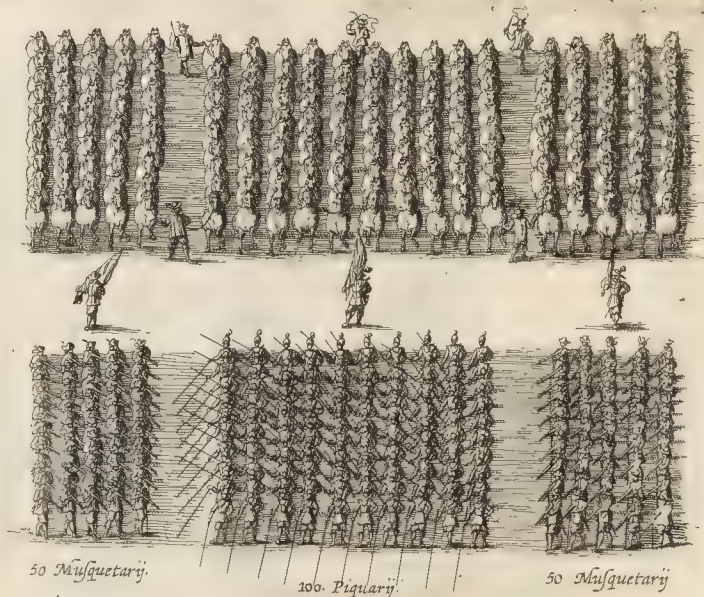 50 Muſquetarij.
100. Piquarij.
50 Muſquetarij